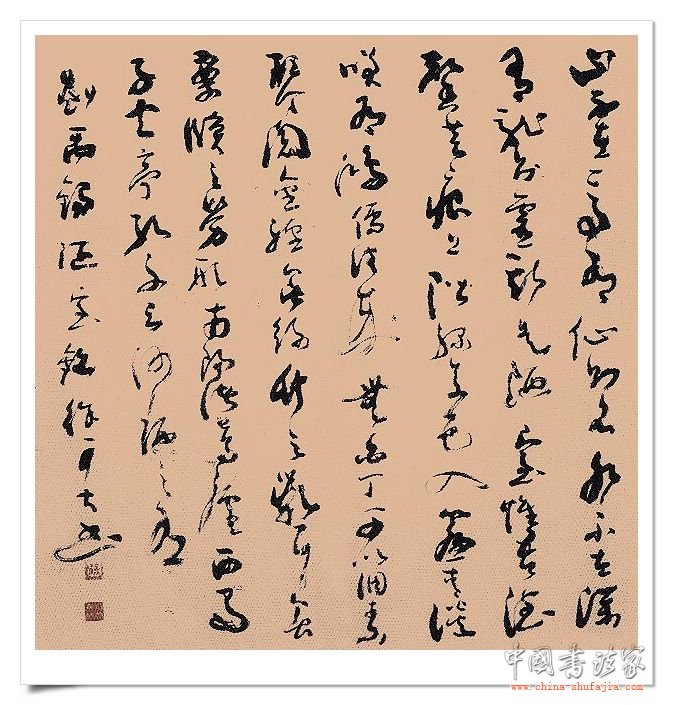 山不在高有仙則名水不在深
有龍則靈斯是陋室惟吾德
馨苔痕上階綠草色入簾青談
笑有鴻儒往來無白丁可以調素
琴閱金經無絲竹之亂耳無
案牘之勞形南陽諸葛廬西蜀
子雲亭孔子云何陋之有
劉禹錫陋室銘徐
中国书法家
www.china-shufajia.com